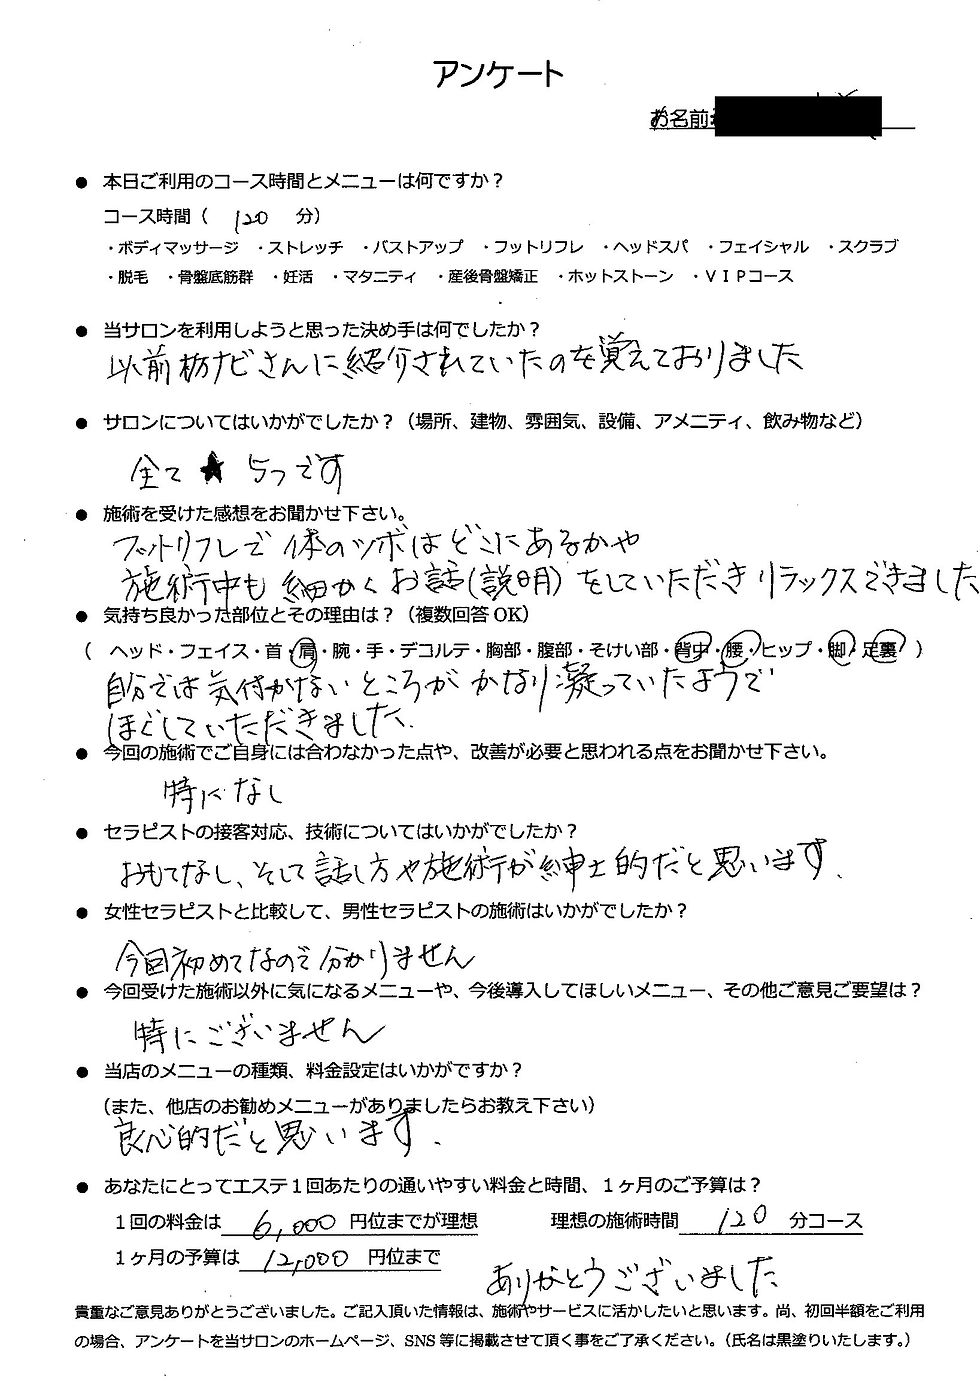 アンケート
お名前
● 本日ご利用のコース時間とメニューは何ですか？
コース時間（ 120 分）
・ボディマッサージ ・ストレッチ ・バストアップ ・フットリフレ ・ヘッドスパ ・フェイシャル ・スクラブ
・脱毛 ・骨盤底筋群 ・妊活 ・マタニティ ・産後骨盤矯正 ・ホットストーン ・ＶＩＰコース
● 当サロンを利用しようと思った決め手は何でしたか？
以前栃ナビさんに紹介されていたのを覚えておりました
● サロンについてはいかがでしたか？（場所、建物、雰囲気、設備、アメニティ、飲み物など）
全て★5つです
● 施術を受けた感想をお聞かせ下さい。
フットリフレで体のツボはどこにあるかや
施術中も細かくお話(説明)をしていただきリラックスできました
● 気持ち良かった部位とその理由は？（複数回答 OK）
（ ヘッド・フェイス・首・肩・腕・手・デコルテ・胸部・腹部・そけい部・背中・腰・ヒップ・脚・足裏 ）
自分では気付かないところがかなり凝っていたようで
ほぐしていただきました.
● 今回の施術でご自身には合わなかった点や、改善が必要と思われる点をお聞かせ下さい。
特になし
● セラピストの接客対応、技術についてはいかがでしたか？
おもてなし、そして話し方や施術が紳士的だと思います.
● 女性セラピストと比較して、男性セラピストの施術はいかがでしたか？
今回初めてなので分かりません
● 今回受けた施術以外に気になるメニューや、今後導入してほしいメニュー、その他ご意見ご要望は？
特にございません
● 当店のメニューの種類、料金設定はいかがですか？
（また、他店のお勧めメニューがありましたらお教え下さい）
良心的だと思います.
● あなたにとってエステ１回あたりの通いやすい料金と時間、１ヶ月のご予算は？
１回の料金は 6,000 円位までが理想 理想の施術時間 120 分コース
１ヶ月の予算は 12,000 円位まで
ありがとうございました
貴重なご意見ありがとうございました。ご記入頂いた情報は、施術やサービスに活かしたいと思います。尚、初回半額をご利用
の場合、アンケートを当サロンのホームページ、SNS 等に掲載させて頂く事をご了承ください。（氏名は黒塗りいたします。）